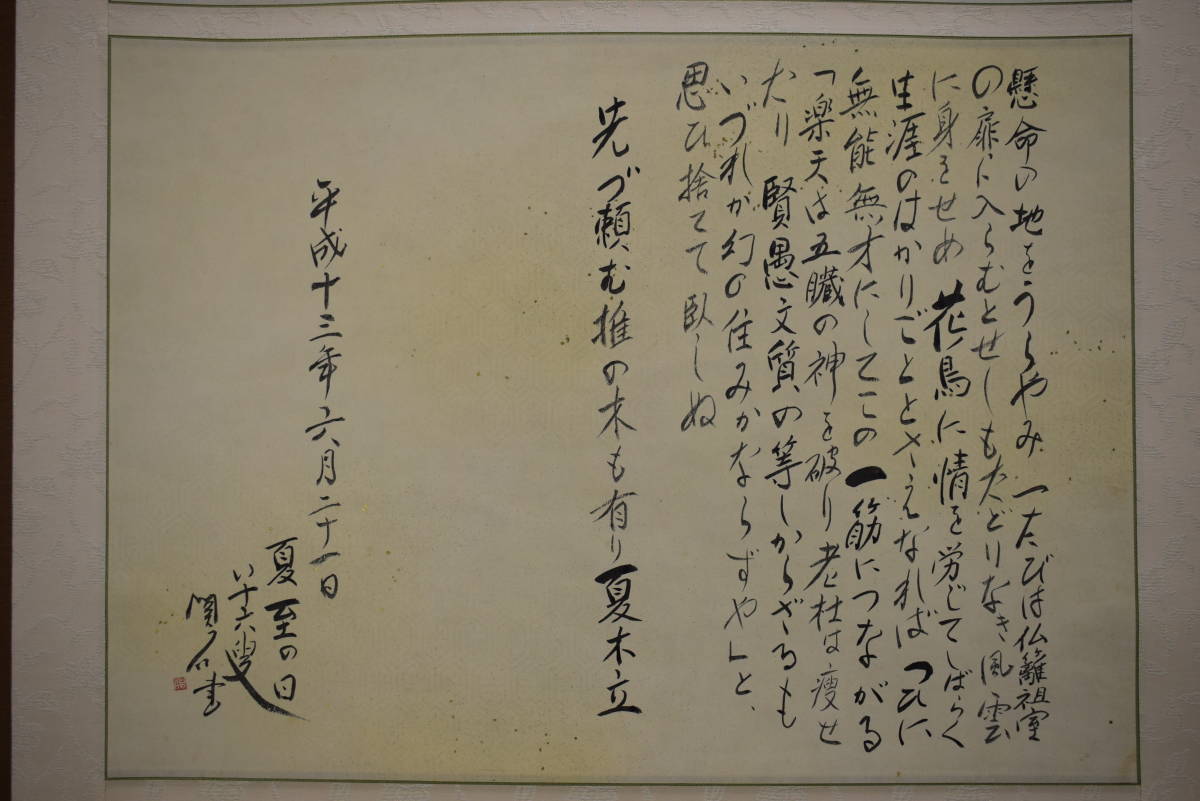 懸命の地をうらやみ 一たびは仏籬祖室
の扉に入らむとせしもたどりなき風雲
に身をせめ 花鳥に情を労じてしばらく
生涯のはかりごととさへなれば つひに
無能無才にしてこの一筋につながる
「楽天は五臓の神を破り老杜は痩せ
たり 賢愚文質の等しからざるも
いづれが幻の住みかならずや」と、
思ひ捨てて臥しぬ
先づ頼む椎の木も有り夏木立
平成十三年六月二十一日
夏至の日
八十六叟
書